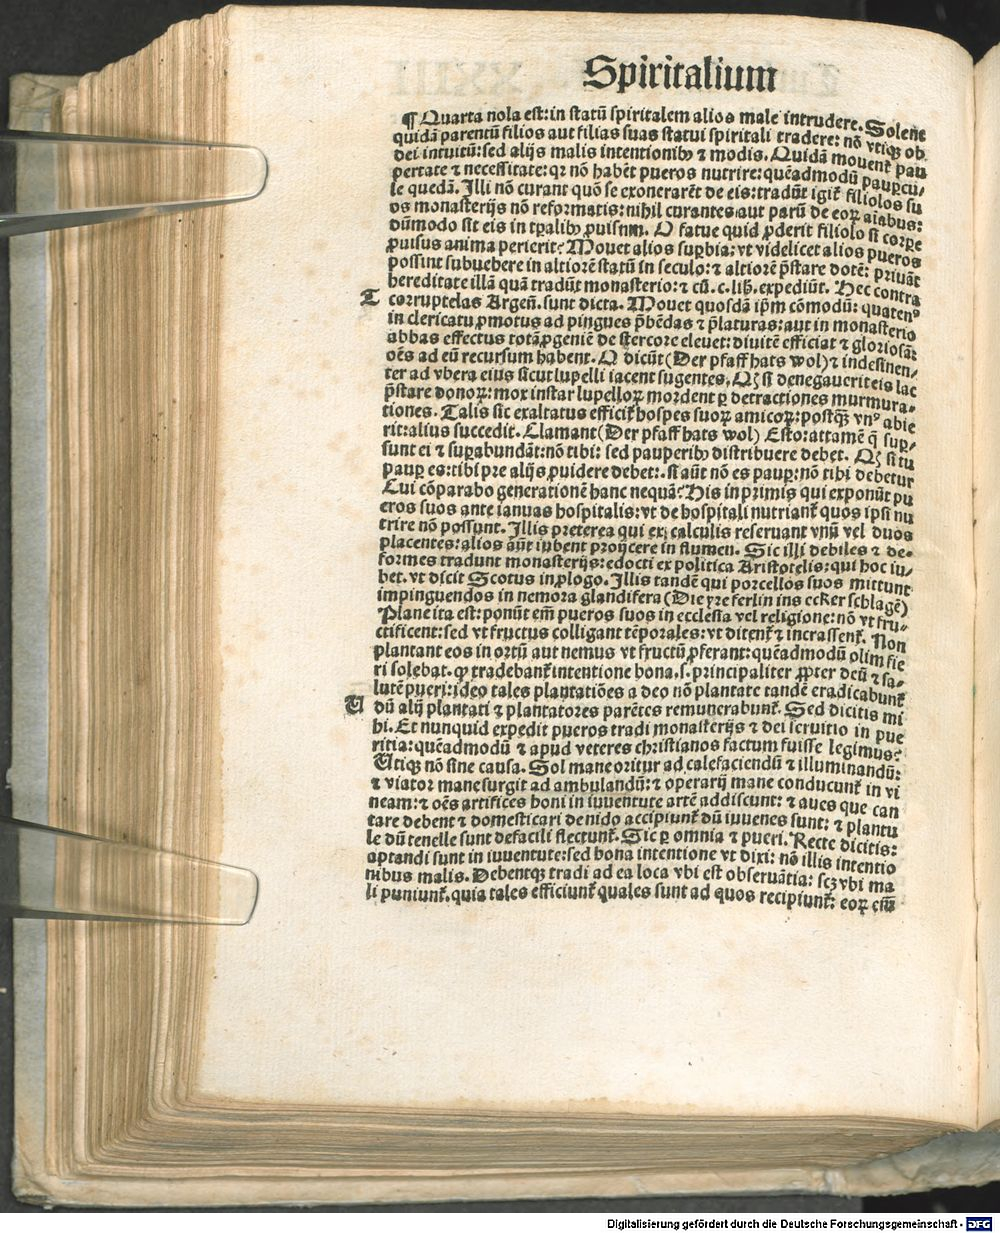 Spiritalium
¶ Quarta nola est: in statū spiritalem alios male intrudere. Solent
quidā parentū filios aut filias suas statui spiritali tradere: nō vtiqꝫ ob
dei intuitū: sed alijs malis intentionibꝰ ⁊ modis. Quidā mouent̄ pau
pertate ⁊ necessitate: qꝛ nō habēt pueros nutrire: quēadmodū paupcu/
le quedā. Illi nō curant quō se exonerarēt de eis: tradūt igit̄ filiolos su
os monasterijs nō reformatis: nihil curantes aut parū de eoꝝ aīabus:
dūmodo sit eis in tp̄alibꝰ ꝓuisum. O fatue quid ꝓderit filiolo si corpe
ꝓuisus anima perierit? Mouet alios supbia: vt videlicet alios pueros
possint subuehere in altiorē statū in seculo: ⁊ altiorē p̄stare dotē: priuāt
hereditate illā quā tradūt monasterio: ⁊ cū .c. lib. expediūt. Hec contra
T
corruptelas Argeñ. sunt dicta. Mouet quosdā ip̄m cōmodū: quatenꝰ
in clericatu ꝓmotus ad pingues p̄bēdas ⁊ p̄laturas: aut in monasterio
abbas effectus totā ꝓgeniē de stercore eleuet: diuitē efficiat ⁊ gloriosā:
oēs ad eū recursum habent. O dicūt (Der pfaff hats wol) ⁊ indesinen/
ter ad vbera eius sicut lupelli iacent sugentes. Qꝫ si denegauerit eis lac
p̄stare donoꝝ: mox instar lupelloꝝ mordent ꝑ detractiones murmura/
tiones. Talis sic exaltatus efficit̄ hospes suoꝝ amicoꝝ: postqꝫ vnꝰ abie
rit: alius succedit. Clamant (Der pfaff hats wol) Esto: attamē q̄ sup/
sunt ei ⁊ supabundāt: nō tibi: sed pauperibꝰ distribuere debet. Qꝫ si tu
paup es: tibi pre alijs ꝓuidere debet: si aūt nō es paup: nō tibi debetur
Cui cōparabo generationē hanc nequā? His in primis qui exponūt pu
eros suos ante ianuas hospitalis: vt de hospitali nutriant̄ quos ipsi nu
trire nō possunt. Illis preterea qui ex catulis reseruant vnū vel duos
placentes: alios aūt iubent proijcere in flumen. Sic illi debiles ⁊ de/
formes tradunt monasterijs: edocti ex politica Aristotelis: qui hoc iu/
bet. vt dicit Scotus in ꝓlogo. Illis tandē qui porcellos suos mittunt
impinguendos in nemora glandifera (Die yre ferlin ins ecker schlagē)
Plane ita est: ponūt em̄ pueros suos in ecclesia vel religione: nō vt fru/
ctificent: sed vt fructus colligant tēporales: vt ditent̄ ⁊ incrassent̄. Non
plantant eos in ortū aut nemus vt fructū ꝓferant: quēadmodū olim fie
ri solebat. qꝛ tradebant̄ intentione bona .s. principaliter ꝓpter deū ⁊ sa/
lutē pueri: ideo tales plantatiōes a deo nō plantate tandē eradicabunt̄
V
dū alij plantati ⁊ plantatores parētes remunerabunt̄. Sed dicitis mi
hi. Et nunquid expedit pueros tradi monasterijs ⁊ dei seruitio in pue
ritia: quēadmodū ⁊ apud veteres christianos factum fuisse legimus?
Vtiqꝫ nō sine causa. Sol mane oritur ad calefaciendū ⁊ illuminandū:
⁊ viator mane surgit ad ambulandū: ⁊ operarij mane conducunt̄ in vi
neam: ⁊ oēs artifices boni in iuuentute artē addiscunt: ⁊ aues que can
tare debent ⁊ domesticari de nido accipiunt̄ dū iuuenes sunt: ⁊ plantu
le dū tenelle sunt de facili flectunt̄. Sic ꝑ omnia ⁊ pueri. Recte dicitis:
aptandi sunt in iuuentute: sed bona intentione vt dixi: nō illis intentio
nibus malis. Debentqꝫ tradi ad ea loca vbi est obseruātia: scꝫ vbi ma
li puniunt̄. quia tales efficiunt̄ quales sunt ad quos recipiunt̄: eoꝝ em̄
Digitalisierung gefördert durch die Deutsche Forschungsgemeinschaft - DFG